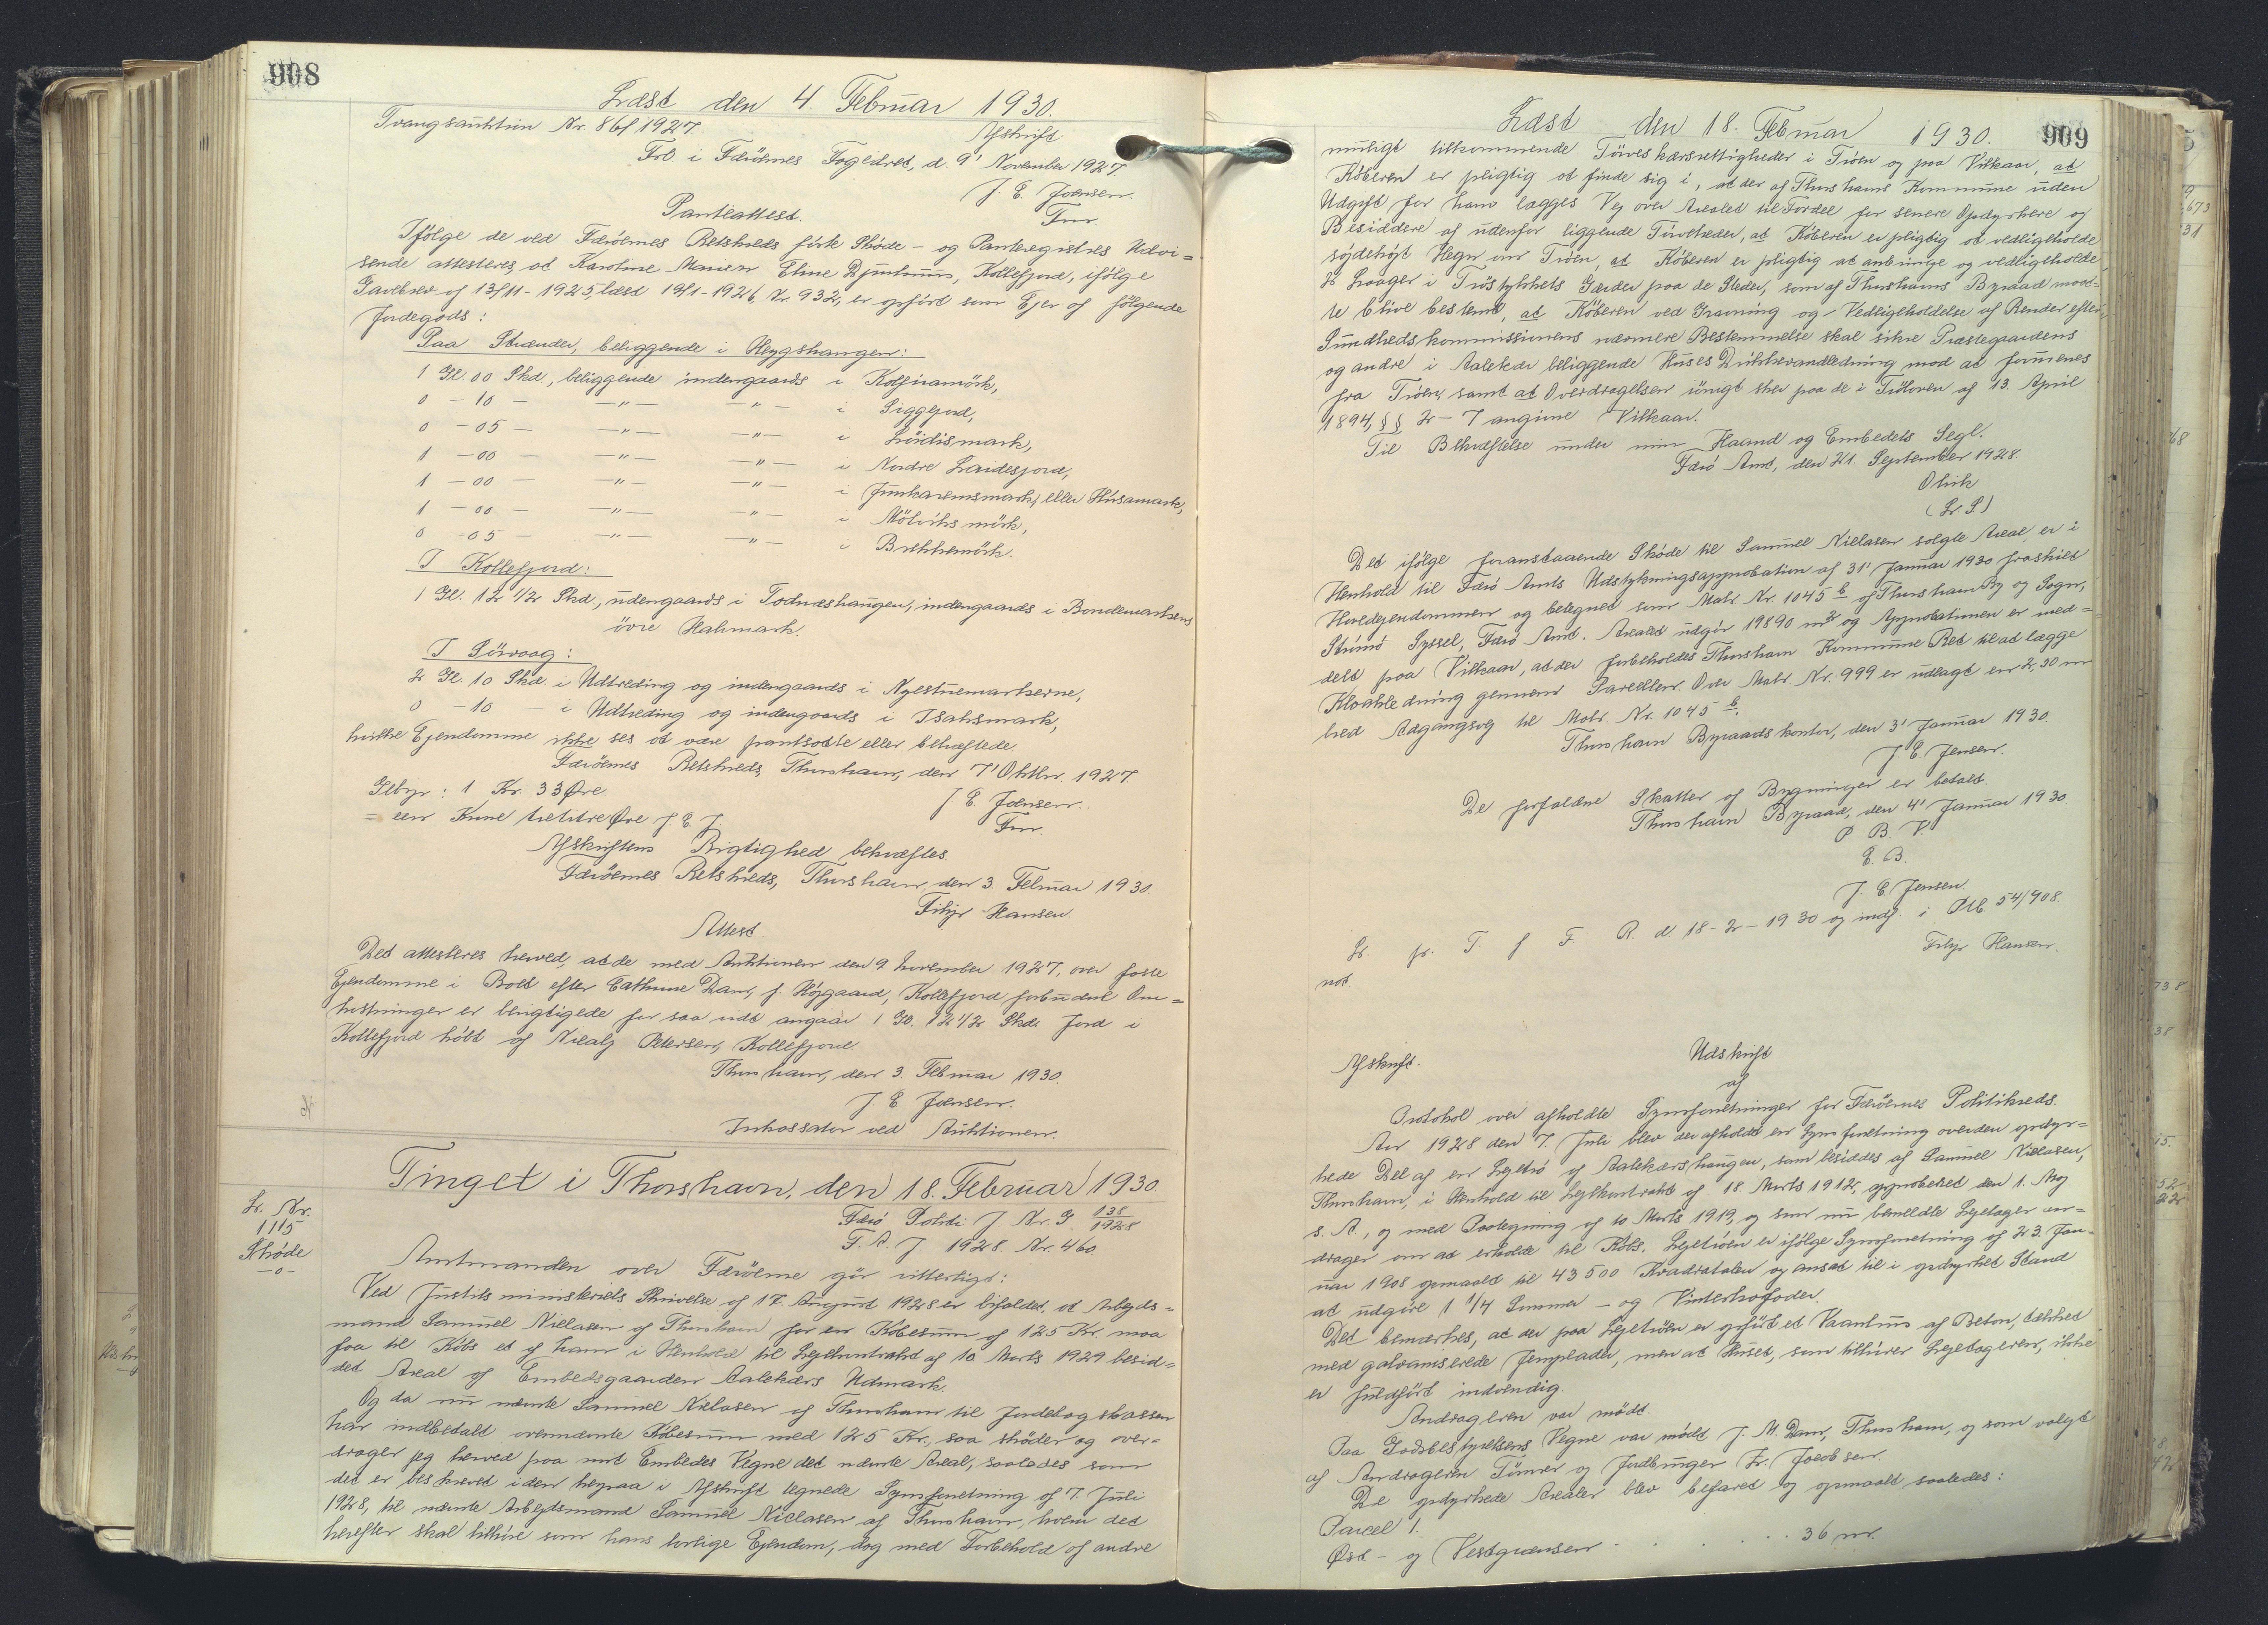 908
Læst den 4. Februar 1930.
Tvangsauktion Nr. 86/1927.
Afskrift
Frl. i Færöernes Fogedret, d. 9' November 1927.
J. E. Joensen.
Fmr.
Panteattest.
Ifölge de ved Færöernes Retskreds förte Sköde- og Panteregistres Udvi=
sende attesteres, at Karoline Marien Eline Djurhuus, Kollefjord, ifölge
Gavebrev af 13/11-1925, læst 19/1-1926, Nr. 932, er opfört som Ejer af fölgende
Jordegods:
Paa Strænder, beliggende i Heygshaugen:
1 Gl. 00 Skd, beliggende indengaards i Kolfinamörk,
0 - 10 - -"- -"- i Siggejord,
0 - 05 - -"- -"- i Löidismark,
1 - 00 - -"- -"- i Nordre Laidesjord,
1 - 00 - -"- -"- i Junkarensmark, eller Húsamark,
1 - 00 - -"- -"- i Mölviksmörk,
0 - 05 - -"- -"- i Brekkemörk.
I Kollefjord:
1 Gl. 12 1/2 Skd., udengaards i Todnæshaugen, indengaards i Bondemarkens
övre Halmark.
I Sörvaag:
2 Gl. 10 Skd. i Udtreding og indengaards i Nyestuemarkerne,
0 - 10 - i Udtreding og indengaards i Isaksmark,
hvilke Ejendomme ikke ses at være pantsatte eller behæftede.
Færöernes Retskreds, Thorshavn, den 7' Oktbr. 1927.
Gebyr: 1 Kr. 33 Øre.
J. E. Joensen.
= een Krone tretitre Øre J. E. J.
Fmr.
Afskriftens Rigtighed bekræftes.
Færöernes Retskreds, Thorshavn, den 3. Februar 1930.
Filip Hansen.
Attest
Det attesteres herved, at de med Auktionen den 9 November 1927, over faste
Ejendomme i Boet efter Cathrine Dam, f. Höjgaard, Kollefjord forbundne Om=
kostninger er berigtigede for saa vidt angaar 1 Gl. 12 1/2 Skd. Jord i
Kollefjord köbt af Niealj Petersen, Kollefjord
Thorshavn, den 3. Februar 1930.
J. E Joensen.
Inkassator ved Auktionen.
Tinget i Thorshavn, den 18. Februar 1930.
L. Nr.
1115
Sköde
-o-
Færö Politi J. Nr. G. 138/1928
F. A. J. 1928. Nr. 460
Amtmanden over Færöerne gör vitterligt:
Ved Justitsministeriets Skrivelse af 17. August 1928 er bifaldet, at Arbejds=
mand Samuel Nielasen af Thorshavn for en Köbesum af 125 Kr. maa
faa til Köbs et af ham i Henhold til Lejekontrakt af 10 Marts 1929 besid=
det Areal af Embedsgaarden Aalekærs Udmark.
Og da nu nævnte Samuel Nielasen af Thorshavn til Jordebogskassen
har indbetalt ovennævnte Köbesum med 125 Kr., saa sköder og over=
drager jeg herved paa mit Embedes Vegne det nævnte Areal, saaledes som
det er beskrevet i den herpaa i Afskrift tegnede Synsforretning af 7. Juli
1928, til nævnte Arbejdsmand Samuel Niclasen af Thorshavn, hvem det
herefter skal tilhöre som hans lovlige Ejendom, dog med Forbehold af andre
909
Læst den 18. Februar 1930.
muligt tilkommende Törveskærsrettigheder i Tröen og paa Vilkaar, at
Köberen er pligtig at finde sig i, at der af Thorshavns Kommune uden
Udgift for ham lægges Vej over Arealet til Fordel for senere Opdyrkere og
Besiddere af udenfor liggende Törvelræder, at Köberen er pligtig at vedligeholde
söjdehöjt Hegn om Tröen, at Köberen er pligtig at anbringe og vedligeholde
2 Laager i Tröstykkets Gærder paa de Steder, som af Thorshavns Byraad maat-
te blive bestemt, at Köberen ved Gravning og Vedligeholdelse af Render efter
Sundhedskommissionens nærmere Bestemmelse skal sikre Præstegaardens
og andre i Aalekær beliggende Huses Drikkevandledning mod at forurenes
fra Tröen, samt at Overdragelsen iövrigt sker paa de i Tröloven af 13. April
1894, §§ 2-7 angivne Vilkaar.
Til Bekræftelse under min Haand og Embedets Segl.
Færö Amt, den 21. September 1928.
Olrik
(L. S.)
Det ifölge foranstaaende Sköde til Samuel Nielasen solgte Areal, er i
Henhold til Færö Amts Udstykningsapprobation af 31' Januar 1930 fraskilt
Hovedejendommen og betegnet som Matr. Nr. 1045 b af Thorshavn By og Sogn,
Strömö Syssel, Færö Amt. Arealet udgör 19890 m² og Approbationen er med=
delt paa Vilkaar, at der forbeholdes Thorshavn Kommune Ret til at lægge
Kloakledning gennem Parcellen. Over Matr. Nr. 999 er udlagt en 2,50 m
bred Adgangsvej til Matr. Nr. 1045 b.
Thorshavn Byraadskontor, den 3' Januar 1930.
J. E. Jensen.
De forfaldne Skatter af Bygninger er betalt.
Thorshavn Byraad, den 4' Januar 1930.
P. B. V.
E. B.
J. E. Jensen.
L. p. T. f F. R. d. 18-2-1930 og indf. i Ptb. 54/908.
not.
Filip Hansen.
Afskrift.
Udskrift
af
Protokol over afholdte Synsforretninger for Færöernes Politikreds.
Aar 1928 den 7. Juli blev der afholdt en Synsforretning over den opdyr=
kede Del af en Lejetrö af Aalekærshaugen, som besiddes af Samuel Niclasen,
Thorshavn, i Henhold til Lejekontrakt af 18. Marts 1912, approberet den 1. Maj
s. A., og med Paategning af 10. Marts 1919, og som nu bemeldte Lejetager an=
drager om at erholde til Köbs. Lejetröen er ifölge Synsforretning af 23. Jan=
uar 1908 opmaalt til 43500 Kvadratalen og ansat til i opdyrket Stand
at udgöre 1 1/4 Sommer- og Vinterkofoder.
Det bemærkes, at der paa Lejetröen er opfört et Vaanhus af Beton, tækket
med galvaniserede Jernplader, men at Huset, som tilhörer Lejetageren, ikke
er fuldfört indvendig.
Andrageren var mödt.
Paa Godsbestyrelsens Vegne var mödt J. M. Dam, Thorshavn, og som valgt
af Andrageren Tömrer og Jordbruger Fr. Jacobsen.
De opdyrkede Arealer blev befaret og opmaalt saaledes:
Parcel 1.
Øst- og Vestgrænsen . . . . . 36 m.